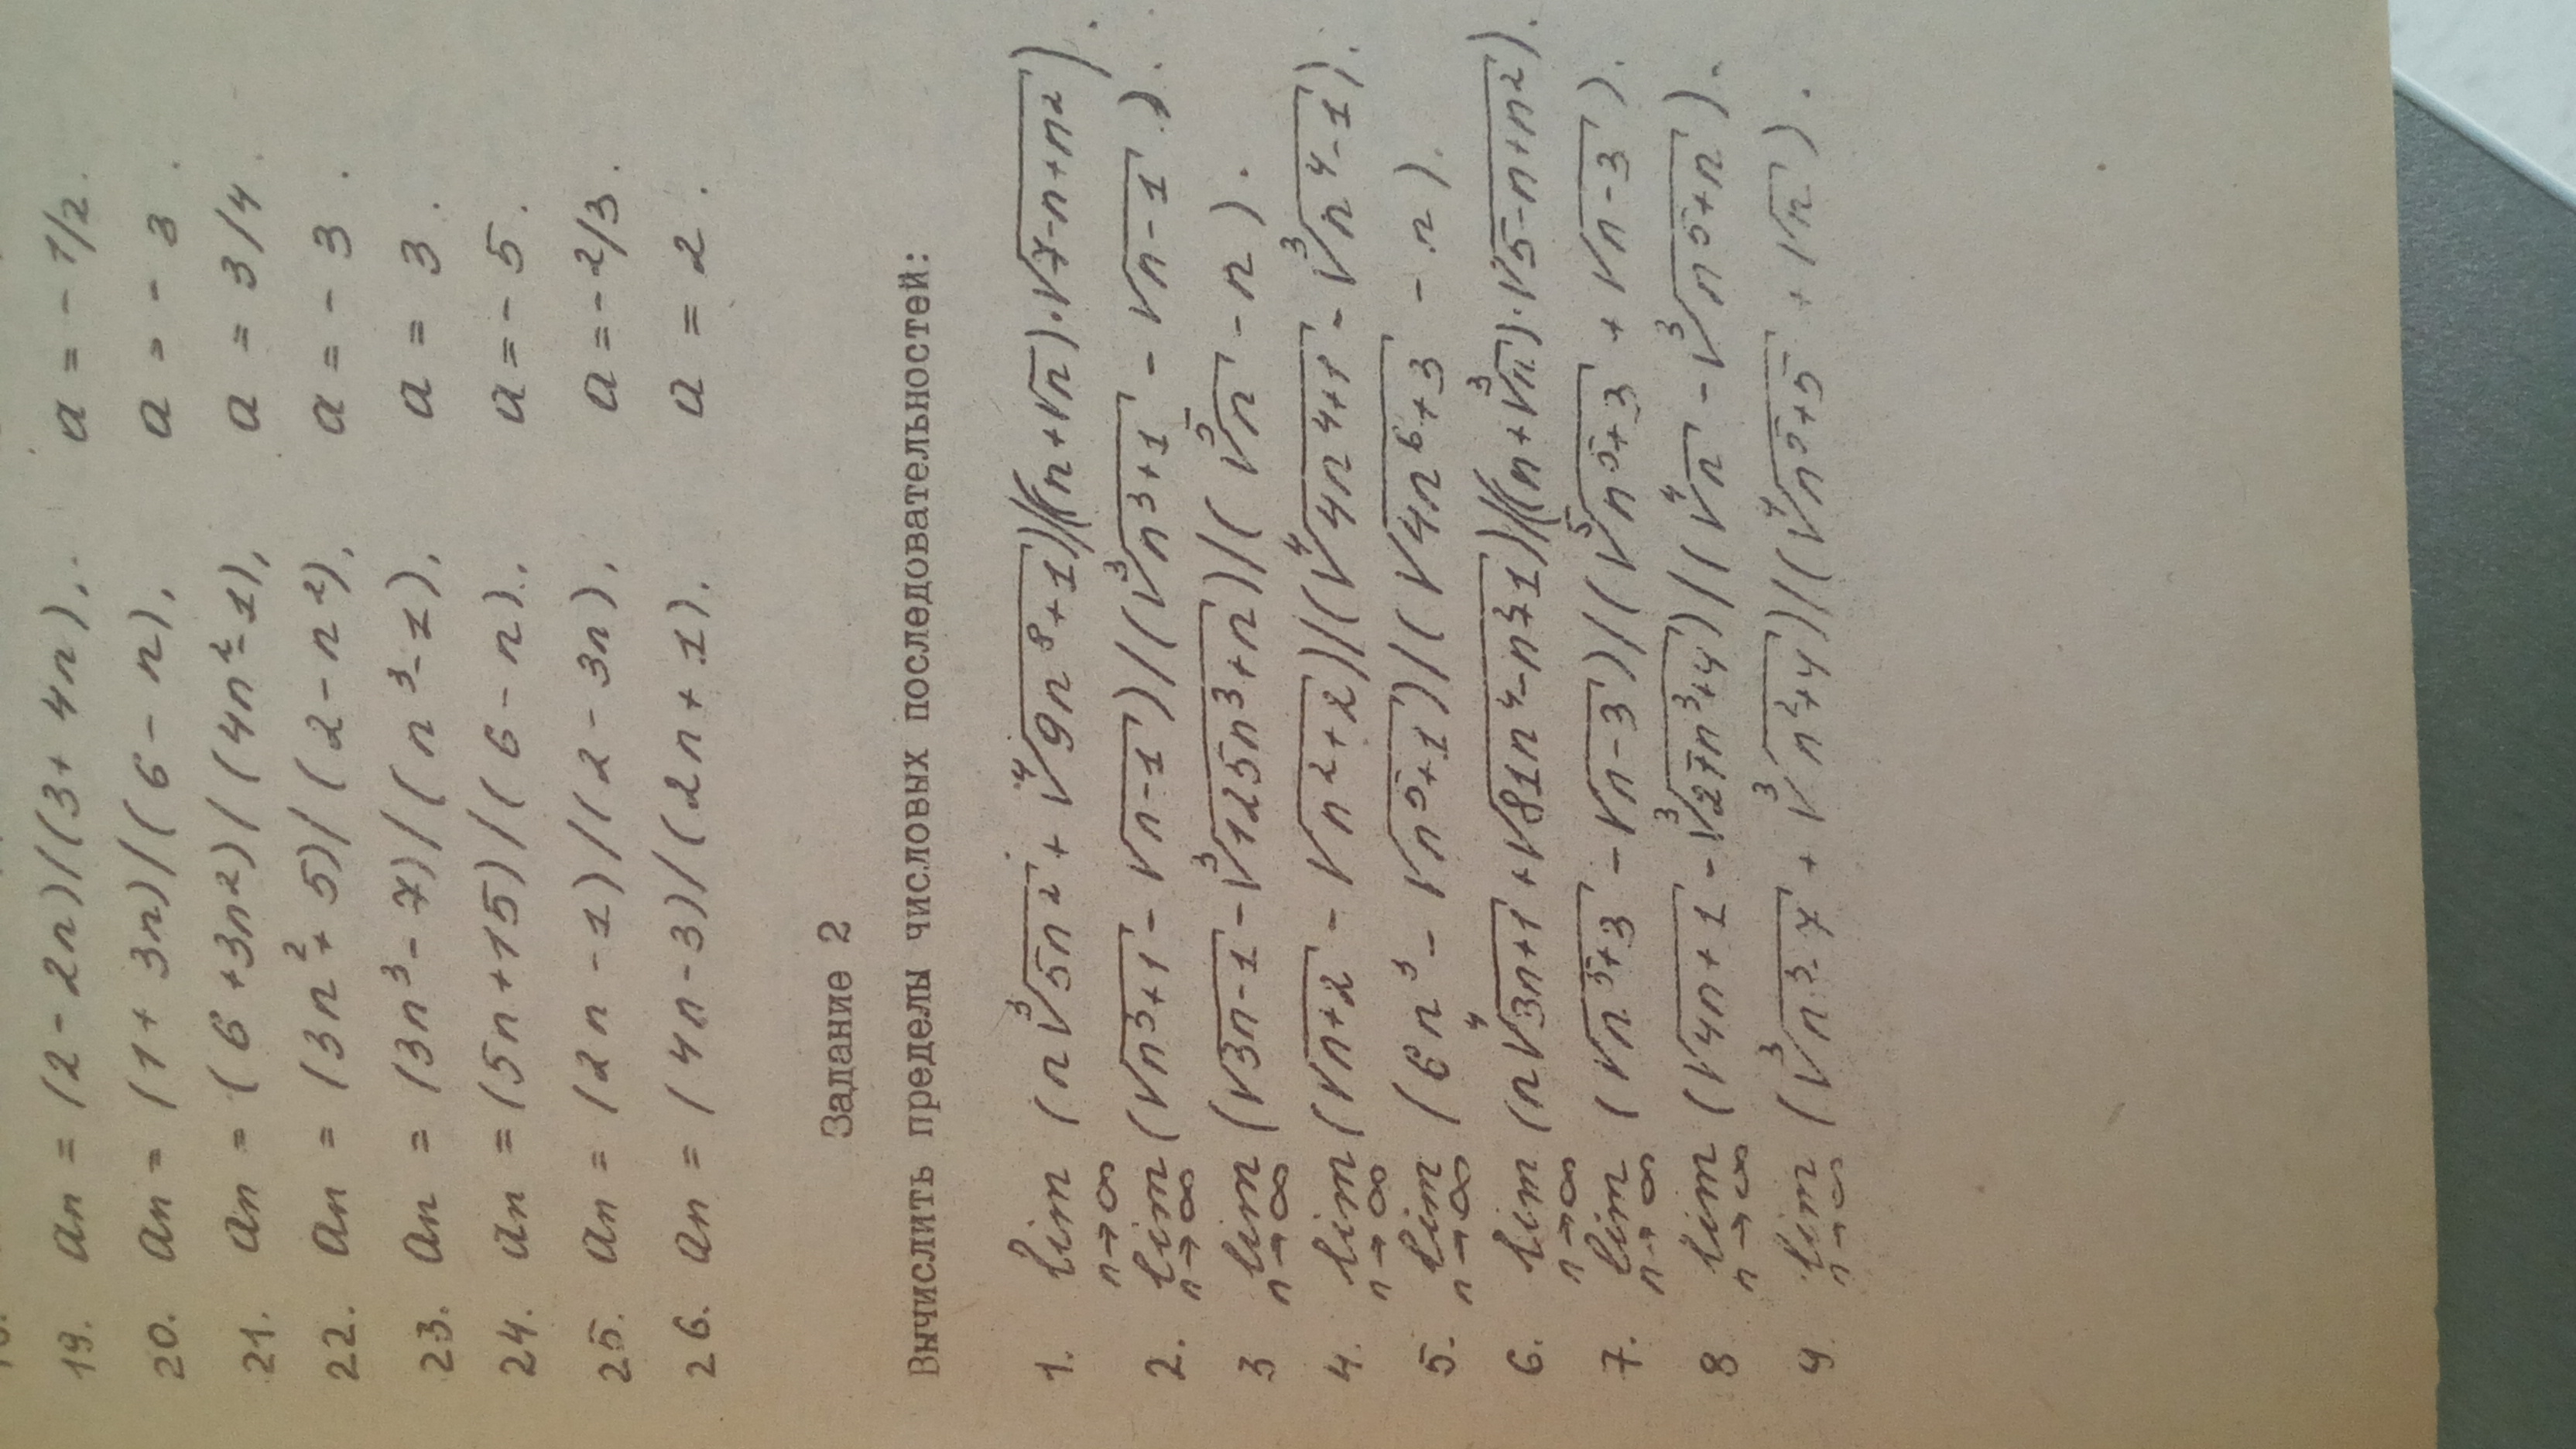 19. an = (2 - 2n)/(3 + 4n), a = - 1/2.
20. an = (1 + 3n)/(6 - n), a = - 3.
21. an = (6 + 3n²)/(4n² - 1), a = 3/4.
22. an = (3n² + 5)/(2 - n²), a = - 3.
23. an = (3n³ - 7)/(n³ - 1), a = 3.
24. an = (5n + 15)/(6 - n), a = - 5.
25. an = (2n - 1)/(2 - 3n), a = - 2/3.
26. an = (4n - 3)/(2n + 1), a = 2.
Задание 2
Вычислить пределы числовых последовательностей:
1. lim n→∞ (n ∛(5n²) + ∜(9n⁸ + 1))/((n + √n)·√(7 - n + n²)).
2. lim n→∞ (√(n³ + 1) - √(n - 1))/(∛(n³ + 1) - √(n - 1)).
3 lim n→∞ (√(3n - 1) - ∛(125n³ + n))/(⁵√n - n).
4. lim n→∞ (√(n + 2) - √(n² + 2))/(∜(4n⁴ + 1) - ∛(n⁴ - 1)).
5. lim n→∞ (6n³ - √(n⁵ + 1))/(√(4n⁶ + 3) - n).
6. lim n→∞ (n ∜(3n + 1) + √(81n⁴ - n² + 1))/((n + ∛n)·√(5 - n + n²).
7. lim n→∞ (√(n³ + 3) - √(n - 3))/(⁵√(n⁵ + 3) + √(n - 3)).
8 lim n→∞ (√(4n + 1) - ∛(27n³ + 4))/(∜n - ∛(n⁵ + n)).
9. lim n→∞ (∛(n³ - 7) + ∛(n² + 4))/(∜(n⁵ + 5) + √n).